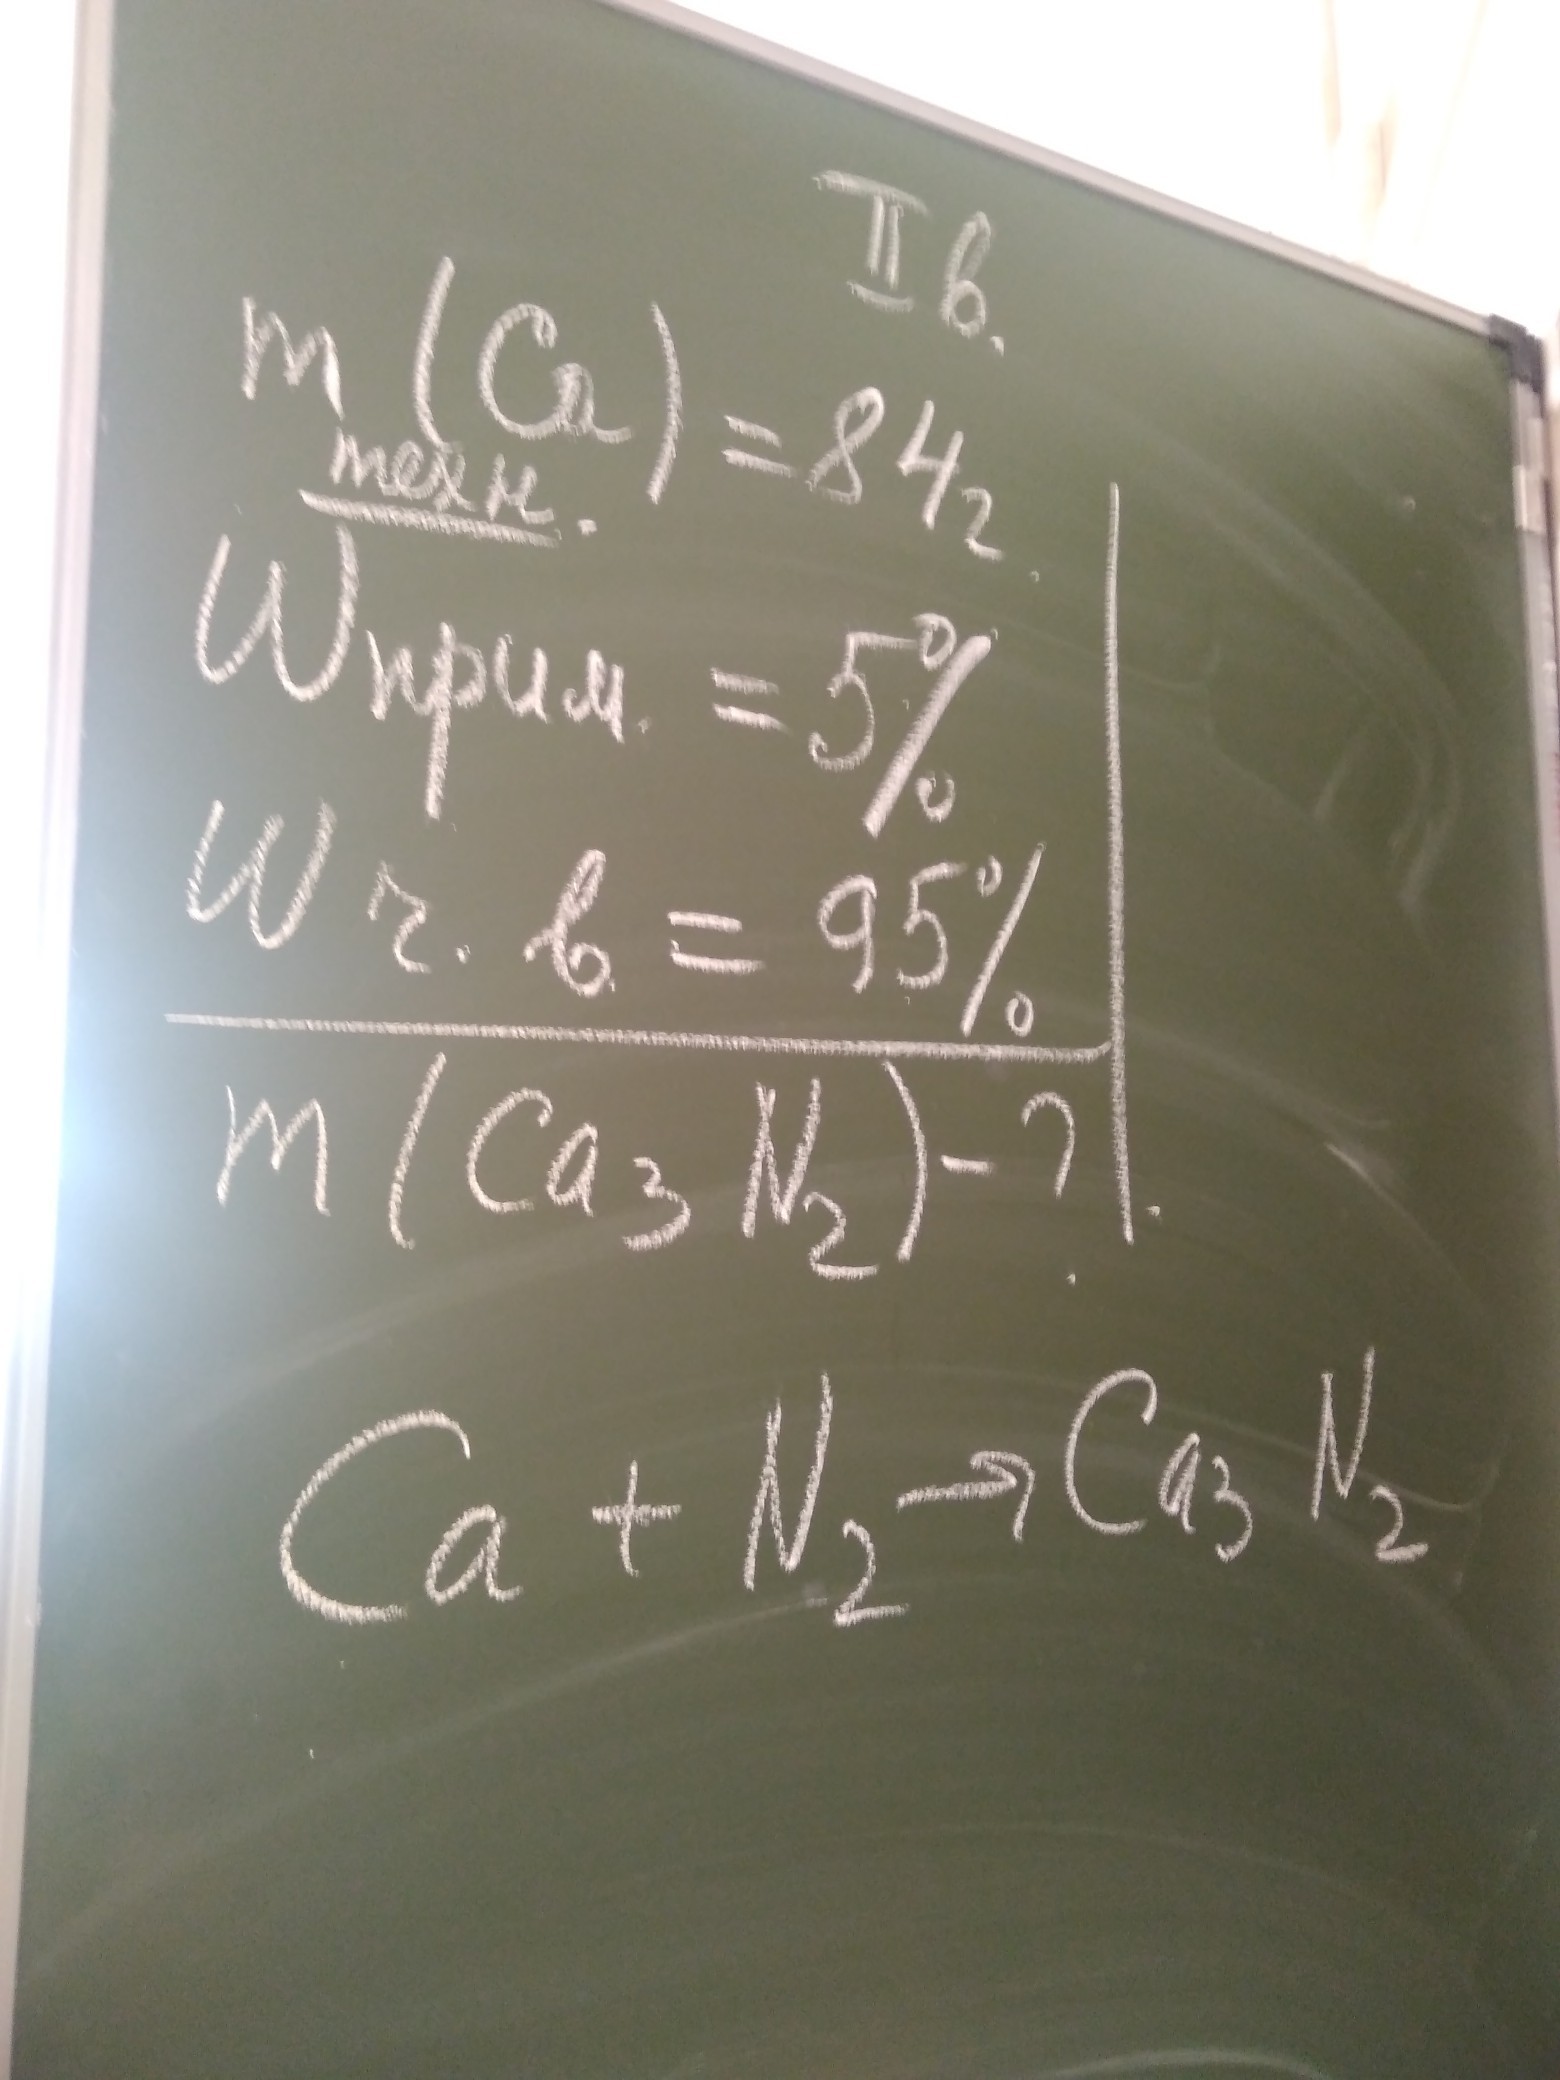 II в.
m (Ca) = 84г.
техн.
W прим. = 5%
W ч. в. = 95%
m (Ca₃N₂) - ?
Ca + N₂ → Ca₃N₂